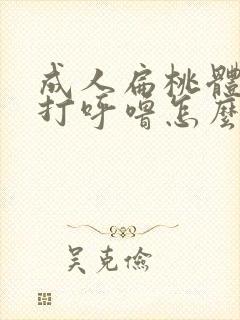 成人扁桃體
打呼嚕怎麼
吴克儉